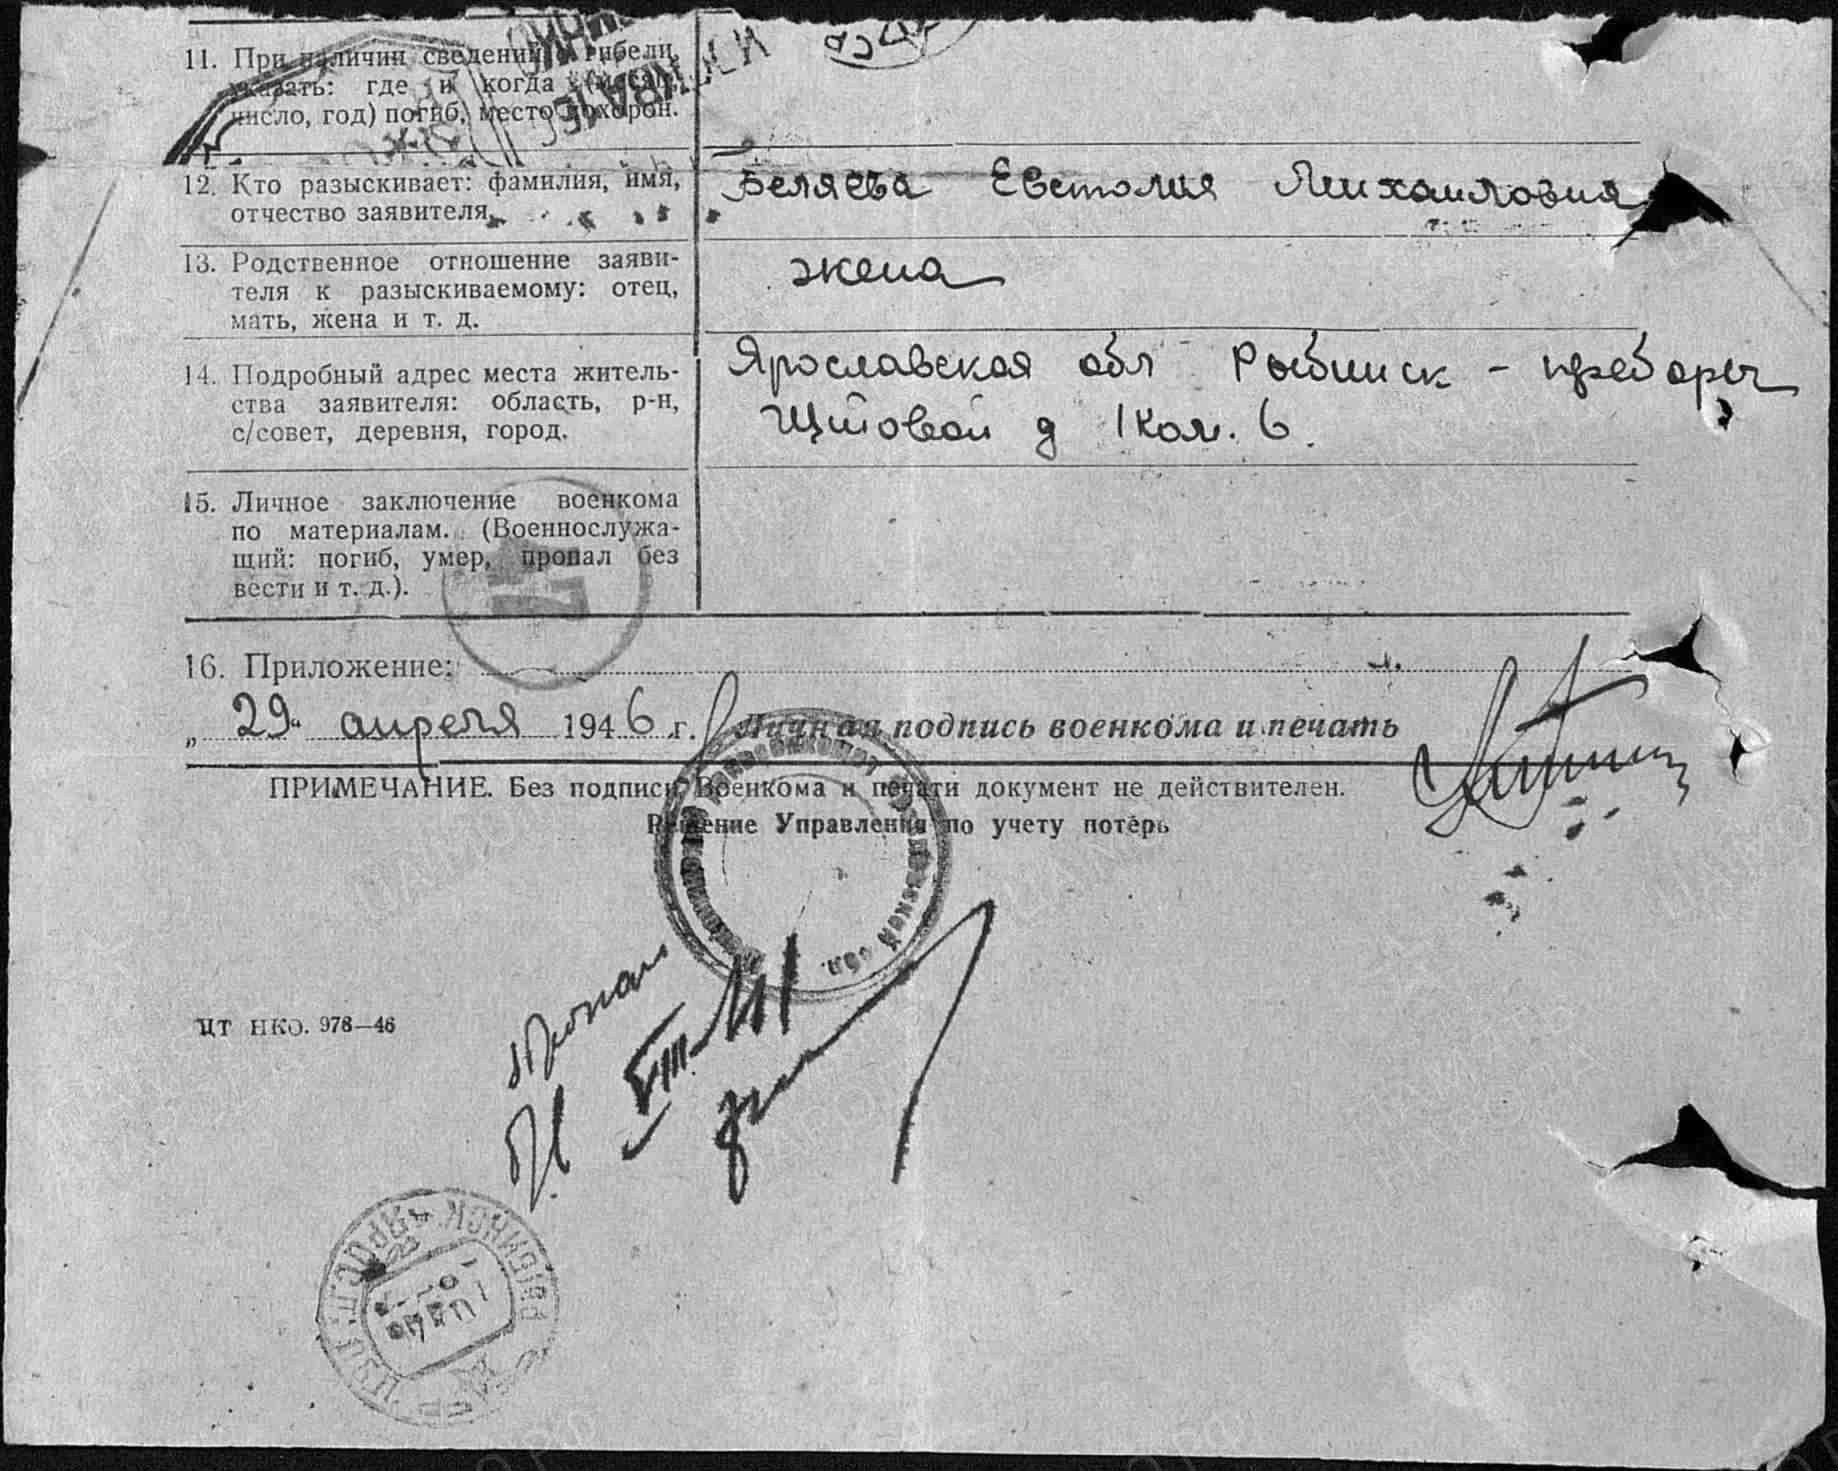 11. При наличии сведений о гибели,
указать: где и когда (месяц,
число, год) погиб, место похорон.
12. Кто разыскивает: фамилия, имя,
отчество заявителя.
Беляева Евстолия Михайловна
13. Родственное отношение заяви-
теля к разыскиваемому: отец,
мать, жена и т. д.
жена
14. Подробный адрес места житель-
ства заявителя: область, р-н,
с/совет, деревня, город.
Ярославская обл Рыбинск -
Щитовой д 1 ком. 6.
15. Личное заключение военкома
по материалам. (Военнослужа-
щий: погиб, умер, пропал без
вести и т. д.).
16. Приложение:
„29“ апреля 1946 г. Личная подпись военкома и печать
ПРИМЕЧАНИЕ. Без подписи Военкома и печати документ не действителен.
Решение Управления по учету потерь
ЦТ НКО. 978—46
РЫБИНСК ЯРОСЛ.